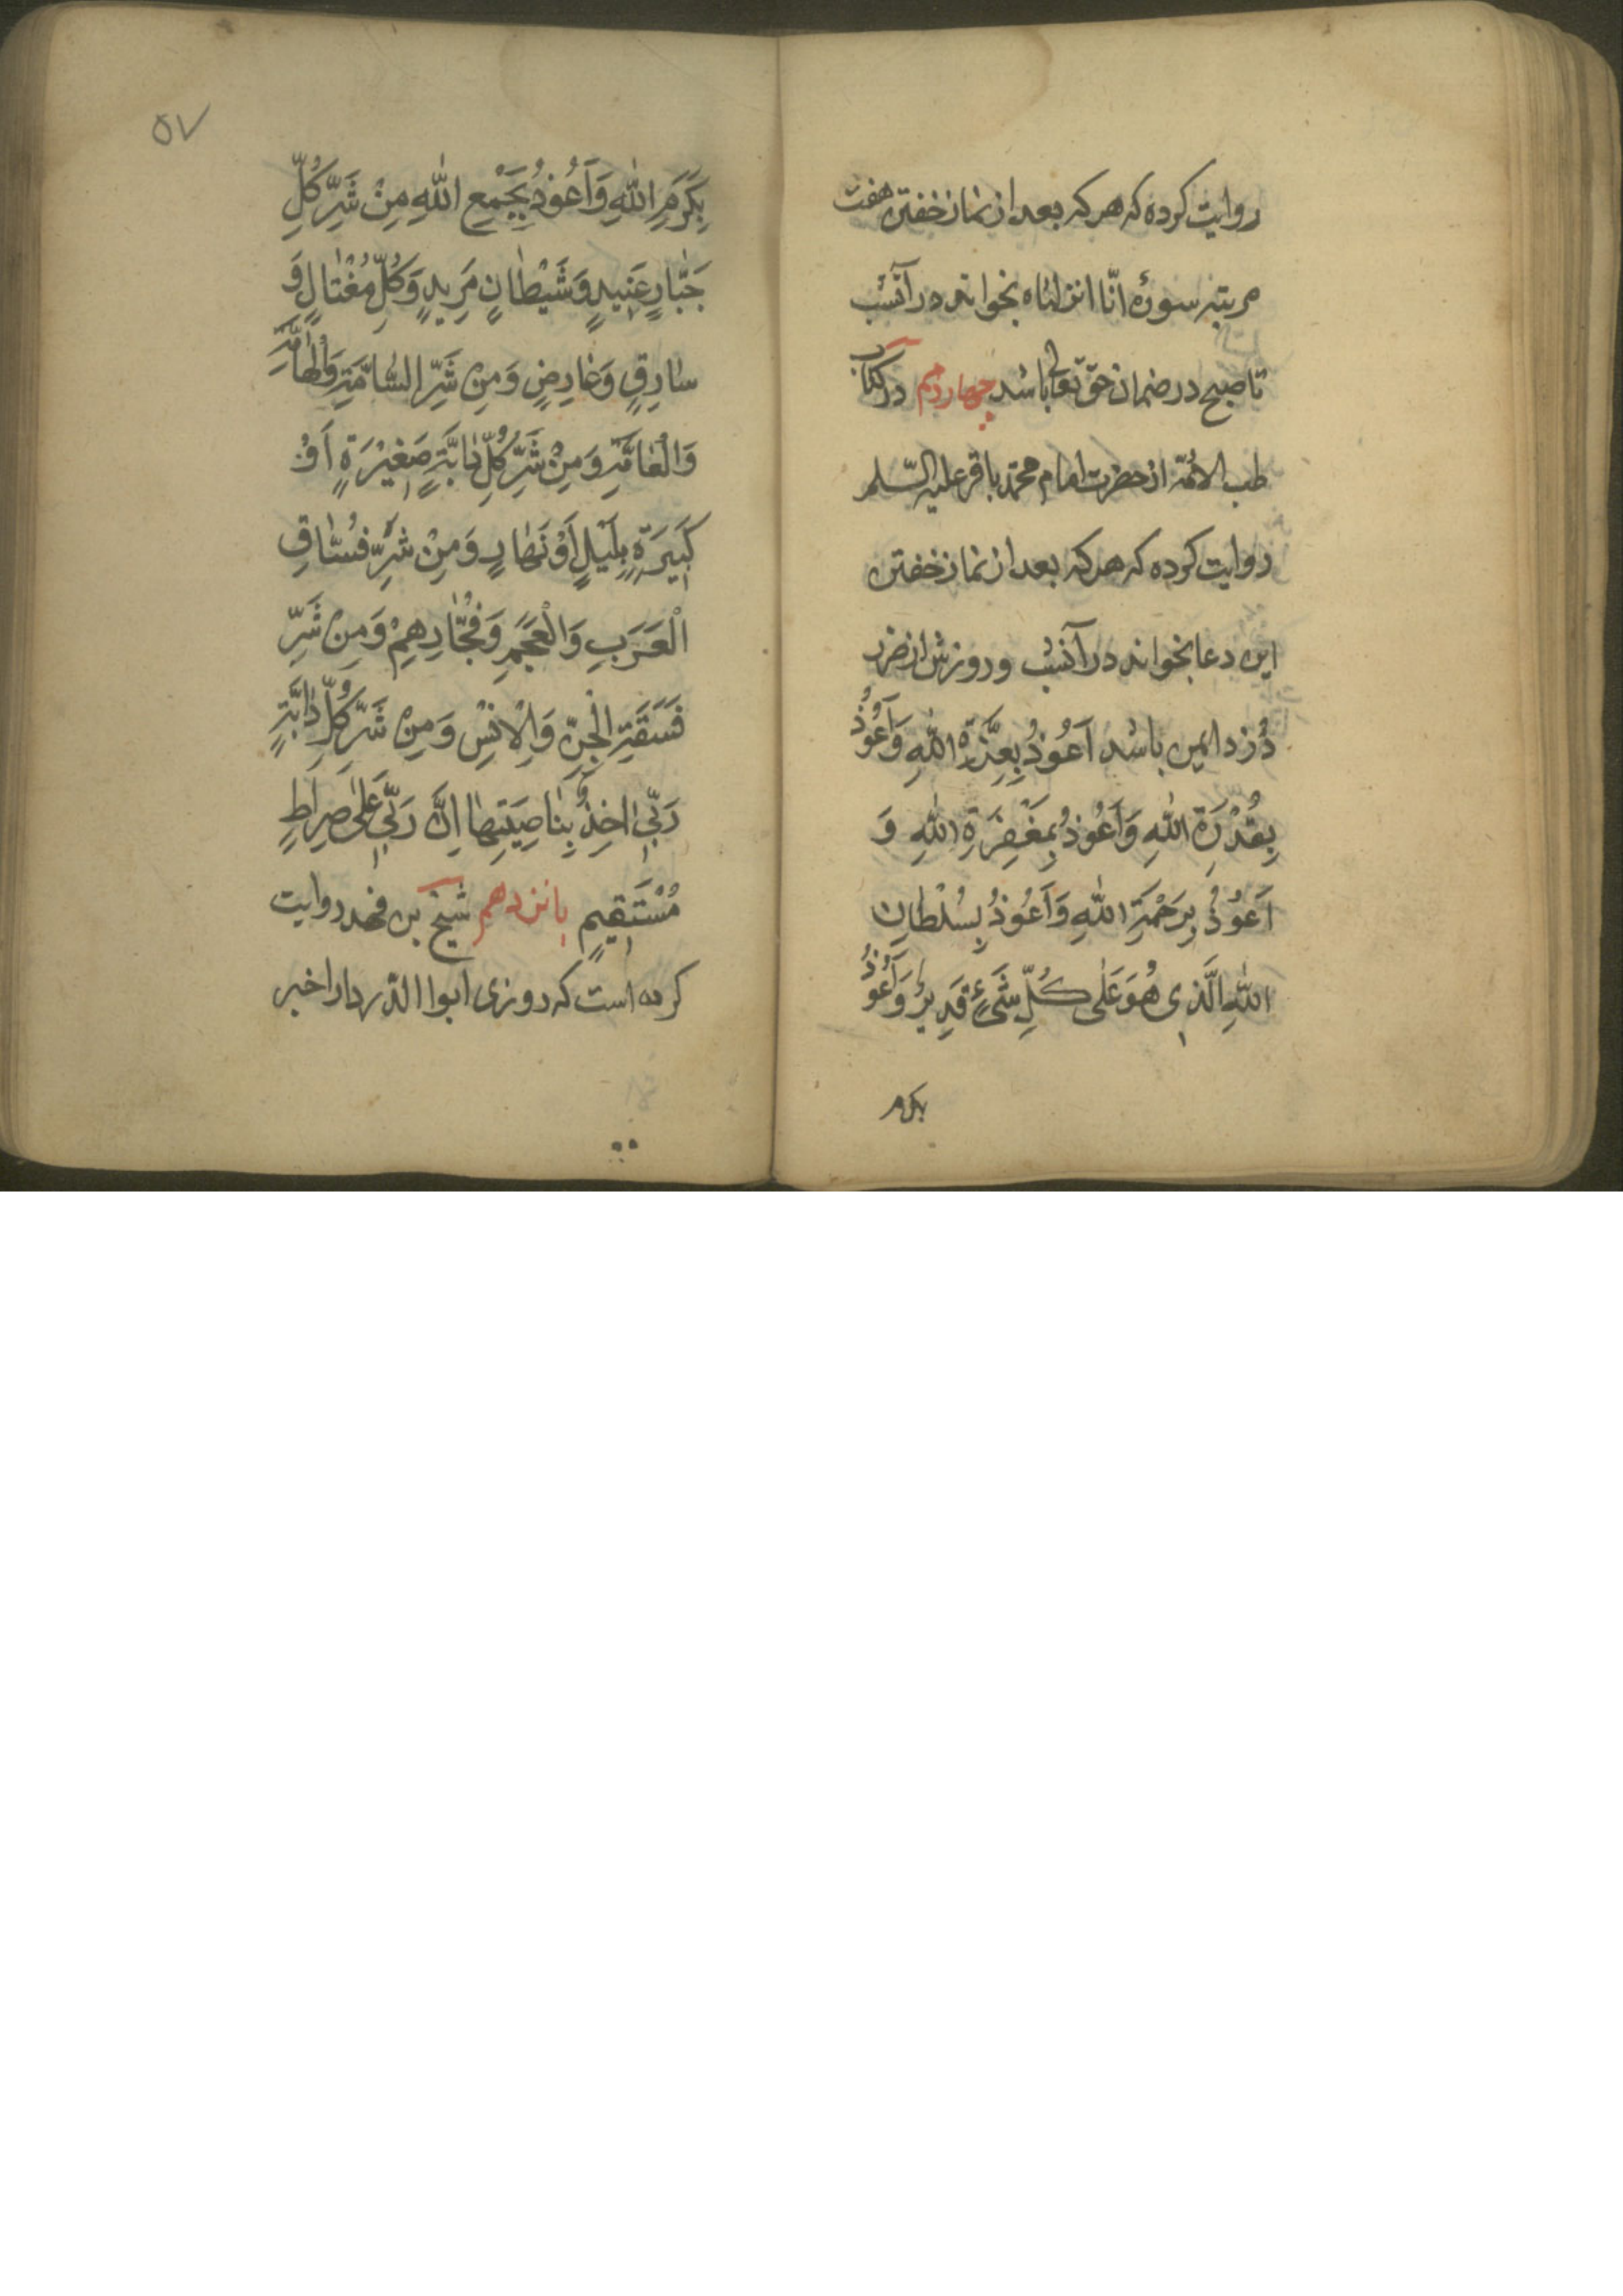 روایت کرده که هر که بعد از نماز خفتن هفت
مرتبه سورهٔ انّا انزلناه بخواند در آنشب
تا صبح در ضمان حقّ تعالی باشد چهاردهم در کتاب
طب الائمّه از حضرت امام محمّد باقر علیه السّلم
روایت کرده که هر که بعد از نماز خفتن
این دعا بخواند در آنشب و روزش از ضرر
دُزد ایمن باشد اَعُوذُ بِعِزَّةِ اللّٰهِ وَاَعُوذُ
بِقُدْرَةِ اللّٰهِ وَاَعُوذُ بِمَغْفِرَةِ اللّٰهِ وَ
اَعُوذُ بِرَحْمَةِ اللّٰهِ وَاَعُوذُ بِسُلْطانِ
اللّٰهِ الَّذِی هُوَ عَلٰی كُلِّ شَیْءٍ قَدِیرٌ وَاَعُوذُ
بکرم
۵۷
بِكَرَمِ اللّٰهِ وَاَعُوذُ بِجَمْعِ اللّٰهِ مِنْ شَرِّ كُلِّ
جَبّٰارٍ عَنِیدٍ وَشَیْطٰانٍ مَرِیدٍ وَكُلِّ مُغْتٰالٍ وَ
سٰارِقٍ وَعٰارِضٍ وَمِنْ شَرِّ السّٰامَّةِ وَالْهٰامَّةِ
وَالْعٰامَّةِ وَمِنْ شَرِّ كُلِّ دٰابَّةٍ صَغِیْرَةٍ اَوْ
كَبِیرَةٍ بِلَیْلٍ اَوْ نَهٰارٍ وَمِنْ شَرِّ فُسّٰاقِ
الْعَرَبِ وَالْعَجَمِ وَفُجّٰارِهِمْ وَمِنْ شَرِّ
فَسَقَةِ الْجِنِّ وَالْاِنْسِ وَمِنْ شَرِّ كُلِّ دٰابَّةٍ
رَبِّی اٰخِذٌ بِنٰاصِیَتِهٰا اِنَّ رَبِّی عَلٰی صِرٰاطٍ
مُسْتَقِیمٍ پانزدهم شیخ بن فهد روایت
کرده است که روزی ابوا الدّرداء را خبر